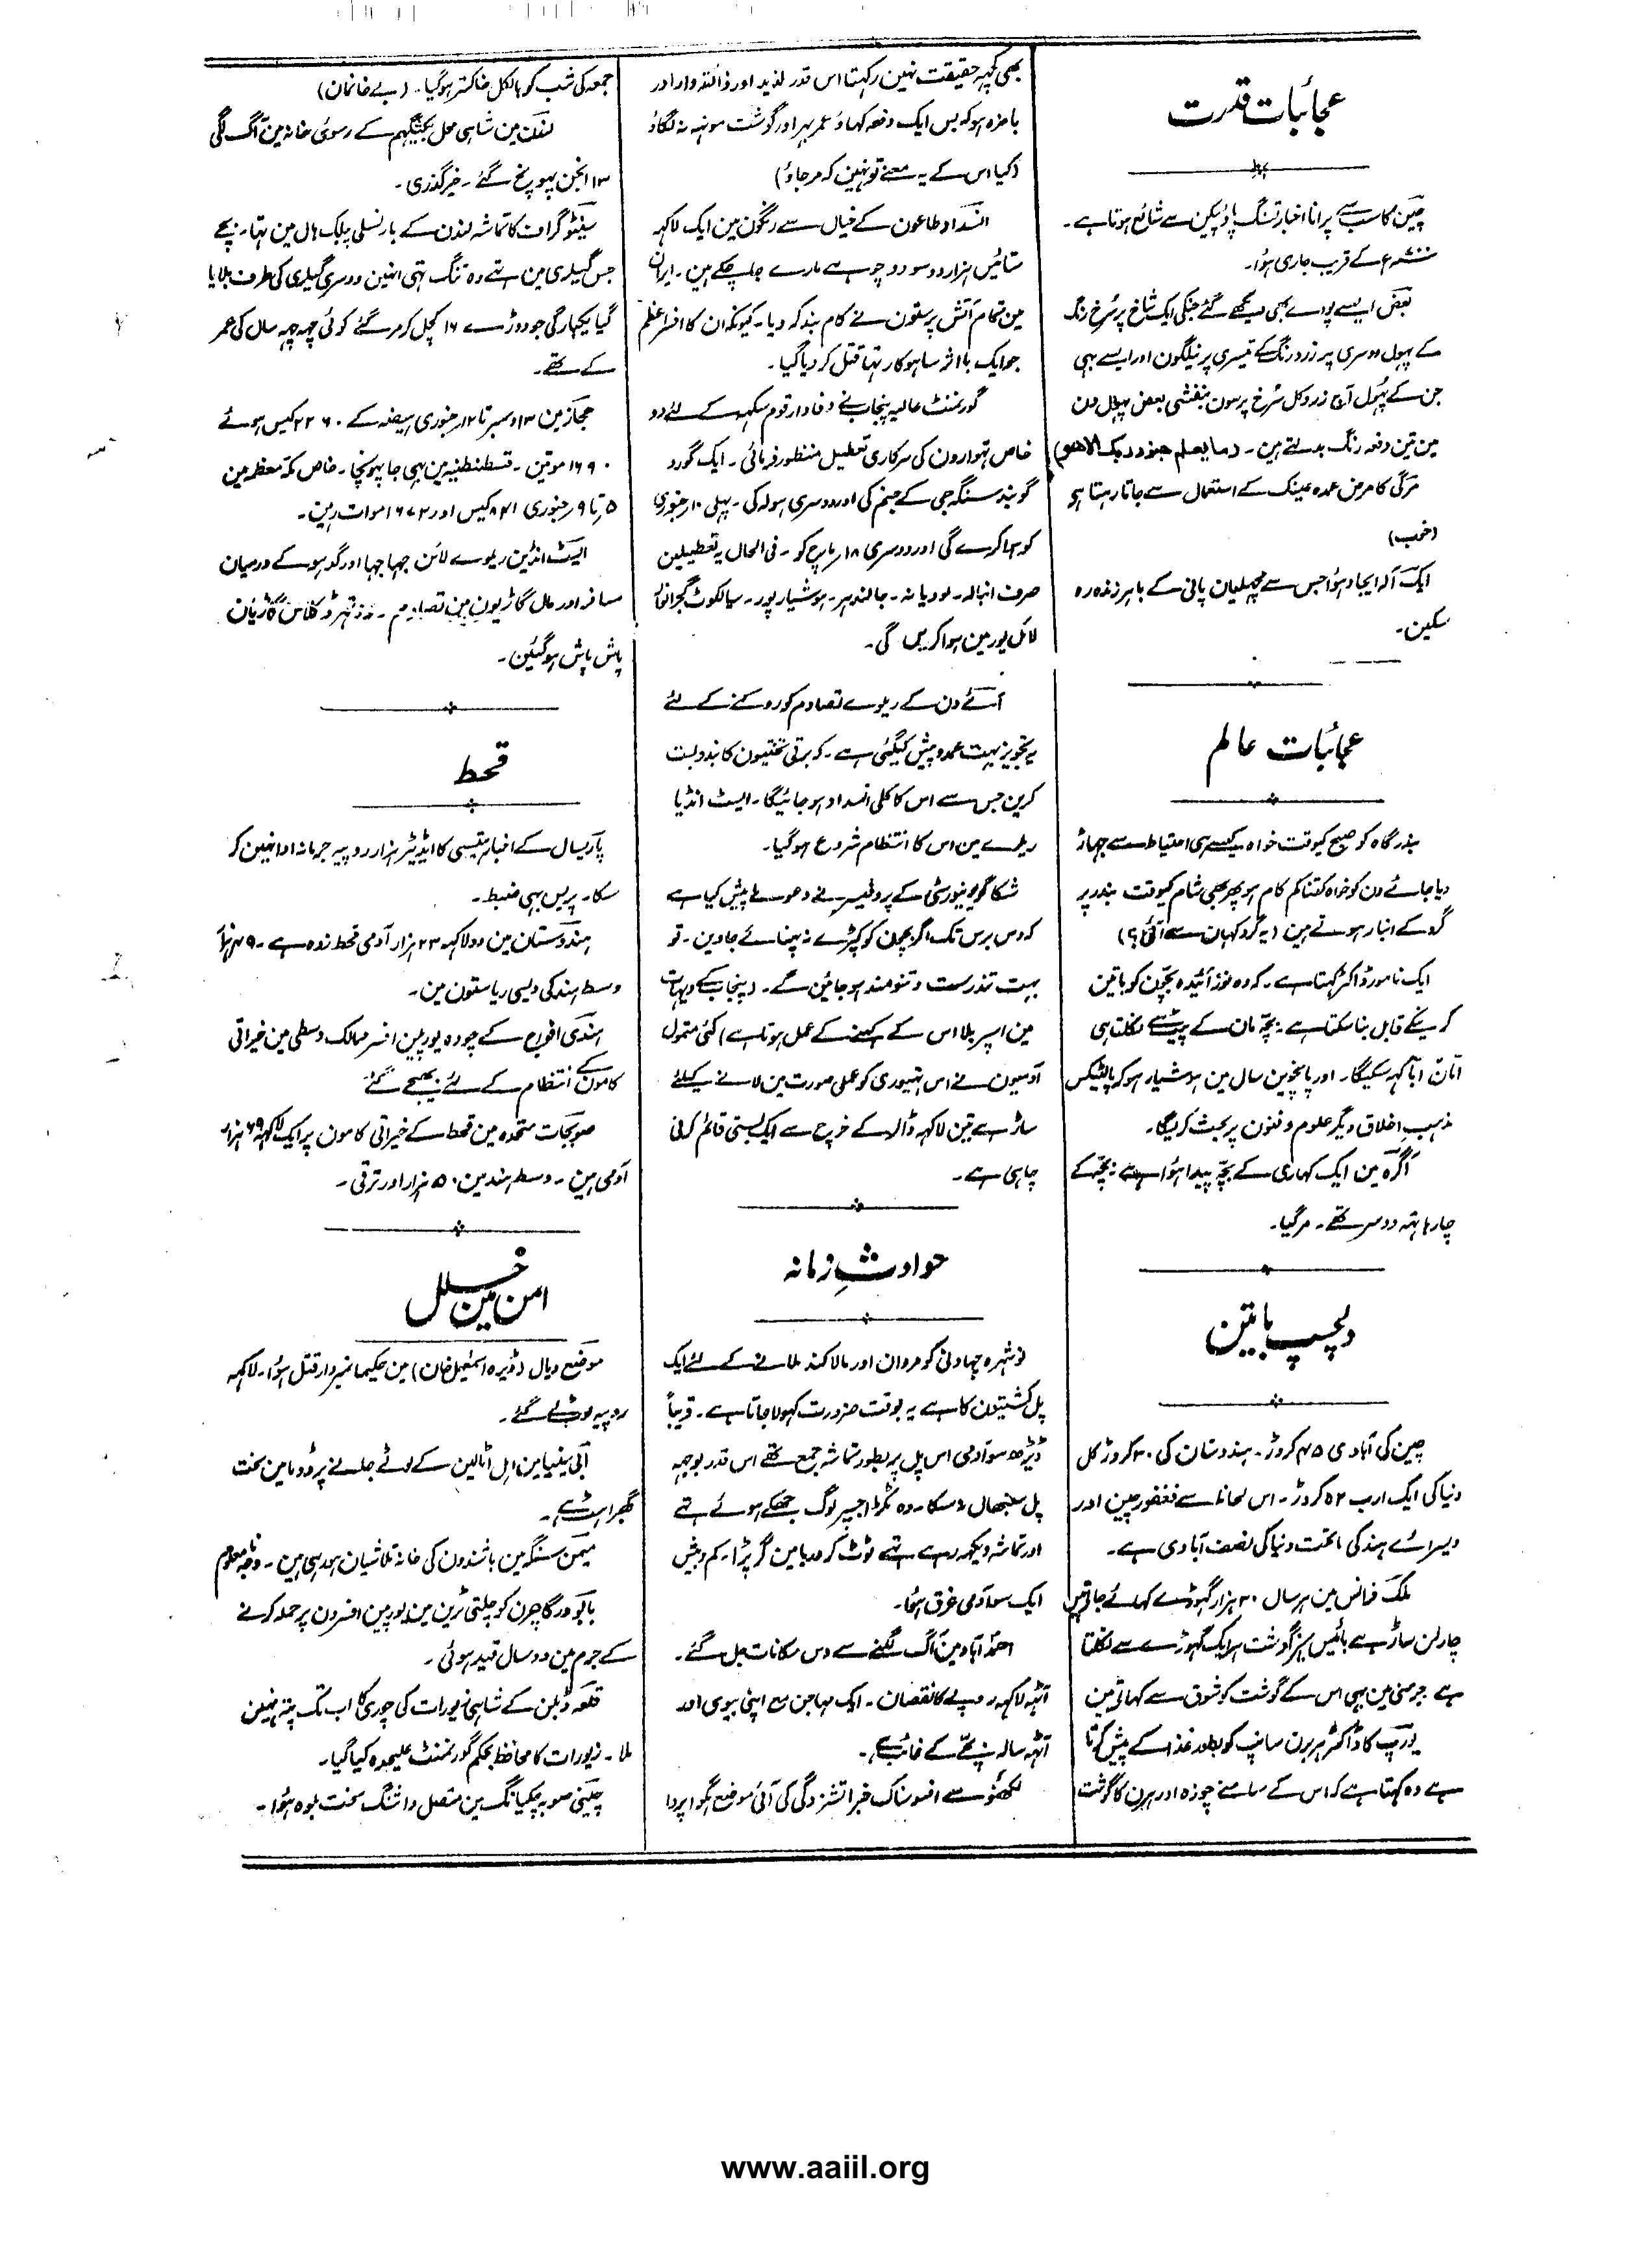 عجائبات قدرت
چین کا سب سے پرانا اخبار تسنگ پاؤ پیکن سے شائع ہوتا ہے۔
کے قریب جاری ہؤا۔
بعض ایسے پودے بھی دیکھے گئے جنکی ایک شاخ پر سُرخ رنگ
کے پھول دوسری پر زرد رنگ کے تیسری پر نیلگون اور ایسے بھی
جن کے پھول آج زرد کل سُرخ پرسون بنفشی بعض پھول دن
مین تین دفعہ رنگ بدلتے ہین۔ (ما یعلم جنود ربک الا ھو)
مرگی کا مرض عمدہ عینک کے استعمال سے جاتا رہتا ہو
(خوب)
ایک آلہ ایجاد ہؤا جس سے مچھلیان پانی کے باہر زندہ رہ
سکین۔
عجائبات عالم
بندرگاہ کو صبح کیوقت خواہ کیسی ہی احتیاط سے جہاڑ
دیا جائے دن کو خواہ کتنا کم کام ہو پھر بھی شام کیوقت بندر پر
گرد کے انبار ہوتے ہین (یہ گرد کہان سے آئی؟)
ایک نامور ڈاکٹر کہتا ہے۔ کہ وہ نوزائیدہ بچّون کو باتین
کرنیکے قابل بنا سکتا ہے۔ بچّہ مان کے پیٹ سے نکلتا ہی
امّان ابّا کہہ سکیگا۔ اور پانچوین سال مین ہوشیار ہوکر پالٹیکس
مذہب اخلاق دیگر علوم و فنون پر بحث کریگا۔
آگرہ مین ایک کہاری کے بچّہ پیدا ہؤا ہے۔ بچّہ کے
چار ہاتہہ دو سر تھے۔ مرگیا۔
دلچسپ باتین
چین کی آبادی ۴۵ کروڑ۔ ہندوستان کی ۳۰ کروڑ کل
دنیا کی ایک ارب ۵۲ کروڑ۔ اس لحاظ سے فغفور چین اور
ویسرائے ہند کی ماتحت دنیا کی نصف آبادی ہے۔
ملک فرانس مین ہر سال ۳۰ ہزار گہوڑے کہائے جاتے ہین
چار من ساڑہے بائیس سیر گوشت ہر ایک گہوڑے سے نکلتا
ہے جرمنی مین بھی اس کے گوشت کو شوق سے کہاتے ہین
یورپ کا ڈاکٹر ہربرن سانپ کو بطور غذا کے پیش کرتا
ہے وہ کہتا ہے کہ اس کے سامنے چوزہ اور ہرن کا گوشت
بھی کچہہ حقیقت نہین رکہتا اس قدر لذیذ اور ذائقہ دار اور
بامزہ ہو کہ بس ایک دفعہ کہاؤ عمر بہر اور گوشت مونہہ نہ لگاؤ
(کیا اس کے یہ معنے تو نہین کہ مرجاؤ)
انسداد طاعون کے خیال سے رنگون مین ایک لاکہہ
ستائیس ہزار دو سو دو چوہے مارے جا چکے ہین۔ ایران
مین تمام آتش پرستون نے کام بند کر دیا۔ کیونکہ ان کا افسر اعظم
جو ایک با اثر ساہوکار تہا قتل کر دیا گیا۔
گورنمنٹ عالیہ پنجاب نے وفادار قوم سکہہ کے لئے دو
خاص تہوارون کی سرکاری تعطیل منظور فرمائی۔ ایک گورو
گوبند سنگہ جی کے جنم کی اور دوسری ہولہ کی۔ پہلی ۱۰ جنوری
کو ہوا کرے گی اور دوسری ۱۸ مارچ کو۔ فی الحال یہ تعطیلین
صرف انبالہ۔ لودیانہ۔ جالندہر۔ ہوشیارپور۔ سیالکوٹ گجرانوالہ
لائل پور مین ہوا کرین گی۔
آئے دن کے ریلوے تصادم کو روکنے کے لئے
یہ تجویز بہت عمدہ پیش کیگئی ہے۔ کہ برقی تختیون کا بندوبست
کرین جس سے اس کا کلی انسداد ہو جائیگا۔ ایسٹ انڈیا
ریلوے مین اس کا انتظام شروع ہو گیا۔
شکاگو یونیورسٹی کے پروفیسر نے دعوے پیش کیا ہے
کہ دس برس تک اگر بچون کو کپڑے نہ پہنائے جاوین۔ تو
بہت تندرست و تنومند ہو جائین گے۔ (پنجاب کے دیہات
مین اسپر بلا اس کے کہنے کے عمل ہوتا ہے) کئی متمول
آدمیون نے اس تہیوری کو عملی صورت مین لانے کیلئے
ساڑہے تین لاکہہ ڈالر کے خرچ سے ایک بستی قائم کرنی
چاہی ہے۔
حوادثِ زمانہ
نوشہرہ چہاونی کو مردان اور مالاکنڈ ملانے کے لئے ایک
پل کشتیون کا ہے یہ بوقت ضرورت کہولا جاتا ہے۔ قریباً
ڈیڑھ سو آدمی اس پل پر بطور تماشہ جمع تھے اس قدر بوجہہ
پل سنبھال نہ سکا۔ وہ ٹکڑا جسپر لوگ جھکے ہوئے تھے
اور تماشہ دیکھہ رہے تھے ٹوٹ کر دریا مین گر پڑا۔ کم و بیش
ایک سو آدمی غرق ہؤا۔
احمد آباد مین آگ لگنے سے دس مکانات جل گئے۔
آٹہہ لاکہہ روپے کا نقصان۔ ایک مہاجن مع اپنی بیوی اور
آٹہہ سالہ بچّے کے غائب ہے۔
لکھنؤ سے افسوسناک خبر آتشزدگی کی آئی موضع
جمعہ کی شب کو بالکل خاکستر ہوگیا۔ (بے خانمان)
لنڈن مین شاہی محل بکینگہم کے رسوئی خانہ مین آگ لگی
۱۳ انجن پہونچ گئے۔ خیر گذری۔
سینٹوگراف کا تماشہ لنڈن کے بارنسلی پبلک ہال مین تہا۔ بچے
جس گیلری مین تھے وہ تنگ تہی انہین دوسری گیلری کی طرف بلایا
گیا یکبارگی جو دوڑے ۱۶ کچل کر مر گئے کوئی چہہ چہہ سال کی عمر
کے تھے۔
حجاز مین ۱۳ دسمبر تا ۱۲ جنوری ہیضہ کے ۲۲۶۰ کیس ہوئے
۱۶۹۰ موتین۔ قسطنطنیہ مین بھی جا پہونچا۔ خاص مکہ معظمہ مین
۵ تا ۹ جنوری ۸۲۱ کیس اور ۶۷۲ اموات رہین۔
ایسٹ انڈین ریلوے لائن جہاجہا اور گدہور کے درمیان
مسافر اور مال گاڑیون مین تصادم۔ دو تہرڈ کلاس گاڑیان
پاش پاش ہوگئین۔
قحط
باریسال کے اخبار ہتیسی کا ایڈیٹر ہزار روپیہ جرمانہ ادا نہین کر
سکا۔ پریس بھی ضبط۔
ہندوستان مین دو لاکہہ ۲۳ ہزار آدمی قحط زدہ ہے۔ ۴۹ ہزار
وسط ہند کی دیسی ریاستون مین۔
ہندی افواج کے چودہ یورپین افسر ممالک وسطی مین خیراتی
کامون کے انتظام کے لئے بھیجے گئے
صوبجات متحدہ مین قحط کے خیراتی کامون پر ایک لاکہہ ۶۹ ہزار
آدمی ہین۔ وسط ہند مین ۵۰ ہزار اور ترقی۔
امن مین خلل
موضع دیال (ڈیرہ اسمٰعیل خان) مین حکیما نمبردار قتل ہؤا۔ لاکہہ
روپیہ لوٹے گئے۔
ابی سینیا مین اہل اٹالین کے لوٹے جانے پر روما مین سخت
گھبراہٹ ہے۔
میمن سنگہ مین باشندون کی خانہ تلاشیان ہو رہی ہین۔ وجہ نامعلوم
بابو درگاچرن کو چلتی ٹرین مین یورپین افسرون پر حملہ کرنے
کے جرم مین دو سال قید ہوئی۔
قلعہ ڈبلن کے شاہی زیورات کی چوری کا اب تک پتہ نہین
ملا۔ زیورات کا محافظ بحکم گورنمنٹ علیحدہ کیا گیا۔
چینی صوبہ چکیانگ مین متصل سخت بلوہ ہؤا۔
www.aaiil.org